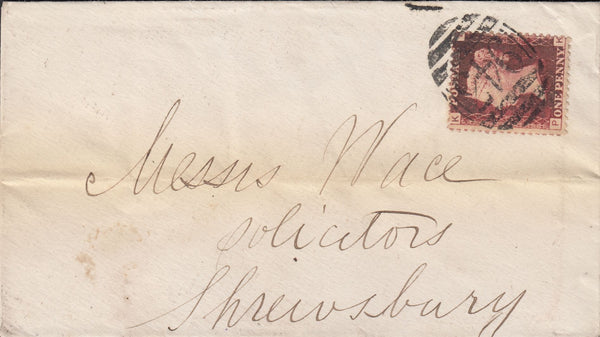 Messrs Wace
Solicitors
Shrewsbury
POSTAGE
ONE PENNY
K
P
K